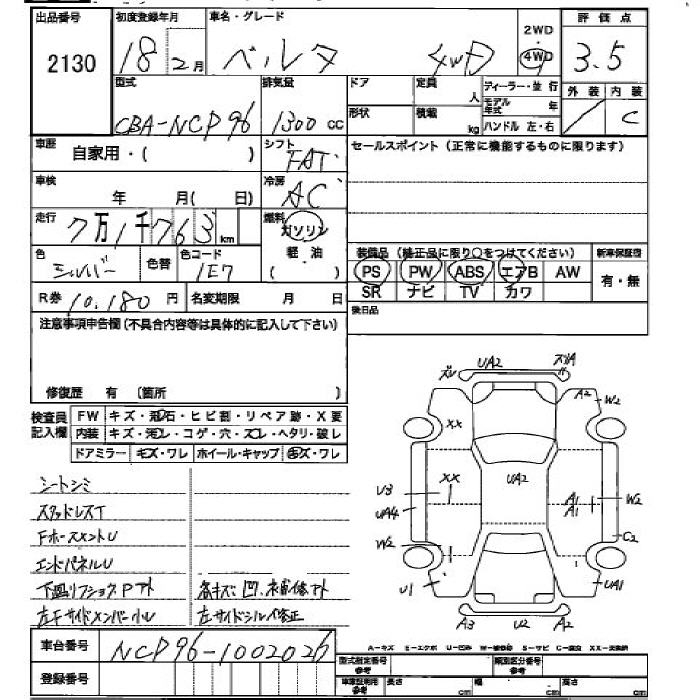 出品番号 初度登録年月 車名・グレード 評価点
2130 18 2月 ベルタ 4WD 2WD 4WD 3.5
型式 排気量 ドア 定員 人 ディーラー・並行 外装 内装
CBA-NCP96 1300 cc 形状 積載 kg モデル年式 年 / C
ハンドル 左・右
車歴 自家用・( ) シフト FAT セールスポイント(正常に機能するものに限ります)
車検 年 月( 日) 冷房 AC
走行 7万1千763 km 燃料 ガソリン
軽油
色 シルバー 色替 色コード 1E7 装備品(純正品に限り○をつけてください) 新車保証書
PS PW ABS エアB AW 有・無
R券 10,180円 名変期限 月 日 SR ナビ TV カワ
注意事項申告欄(不具合内容等は具体的に記入して下さい) 後日品
修復歴 有 (箇所 )
検査員記入欄 FW キズ・飛石・ヒビ割・リペア跡・X要
内装 キズ・汚レ・コゲ・穴・スレ・ヘタリ・破レ
ドアミラー キズ・ワレ ホイール・キャップ キズ・ワレ
ズレ UA2 ズレA
A2 W2
XX
XX UA2
U3 A1 W2
UA4 A1
W2 C2
U1 UA1
A3 U2 A2
シートシミ
スタッドレスT
FホースメントU
エンドパネルU
下廻リフショクPアト 各キズ凹、補修アト
左Fサイドメンバー小U 左サイドシル修正
車台番号 NCP96-1002026
登録番号
A-キズ E-エクボ U-凹ミ W-補修跡 S-サビ C-腐食 XX-交換済
型式指定番号 参考 類別区分番号 参考
車庫証明用 参考 長さ cm 幅 cm 高さ cm